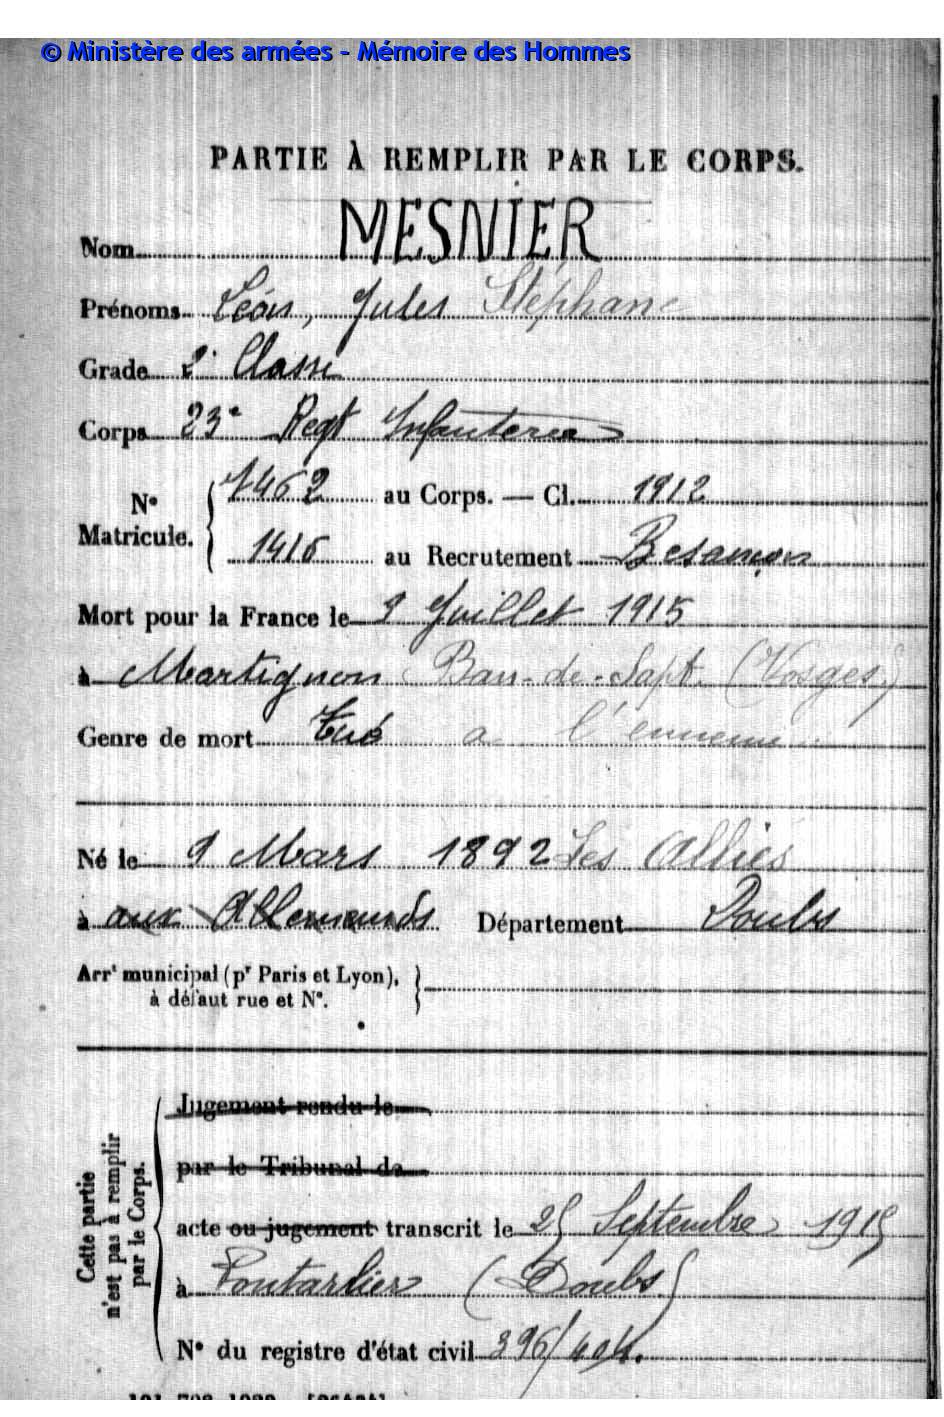 © Ministère des armées - Mémoire des Hommes
PARTIE À REMPLIR PAR LE CORPS.
Nom MESNIER
Prénoms Léon, Jules Stéphane
Grade 2e Classe
Corps 23e Regt Infanterie
N° Matricule. 1462 au Corps. — Cl. 1912
1416 au Recrutement Besançon
Mort pour la France le 9 Juillet 1915
à Martignon Ban-de-Sapt. (Vosges.)
Genre de mort Tué a l'ennemi
Né le 9 Mars 1892 Les Alliés
à aux Allemands Département Doubs
Arrt municipal (pr Paris et Lyon),
à défaut rue et N°.
Cette partie
n'est pas à remplir
par le Corps.
Jugement rendu le
par le Tribunal de
acte ou jugement transcrit le 25 Septembre 1915
à Pontarlier (Doubs)
N° du registre d'état civil 396/404.